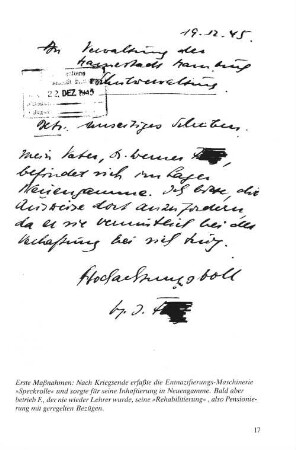 19.12.45.
An Verwaltung der
Hansestadt Hamburg
Schulverwaltung
22. DEZ. 1945
Betr. umseitiges Schreiben.
Mein Vater, Dr. Werner F
befindet sich im Lager
Neuengamme. Ich bitte, die
Ausweise dort anzufordern,
da er sie vermutlich bei der
Verhaftung bei sich trug.
Hochachtungsvoll
F
Erste Maßnahmen: Nach Kriegsende erfaßte die Entnazifizierungs-Maschinerie
»Speckrolle« und sorgte für seine Inhaftierung in Neuengamme. Bald aber
betrieb F., der nie wieder Lehrer wurde, seine »Rehabilitierung«, also Pensionie-
rung mit geregelten Bezügen.
17